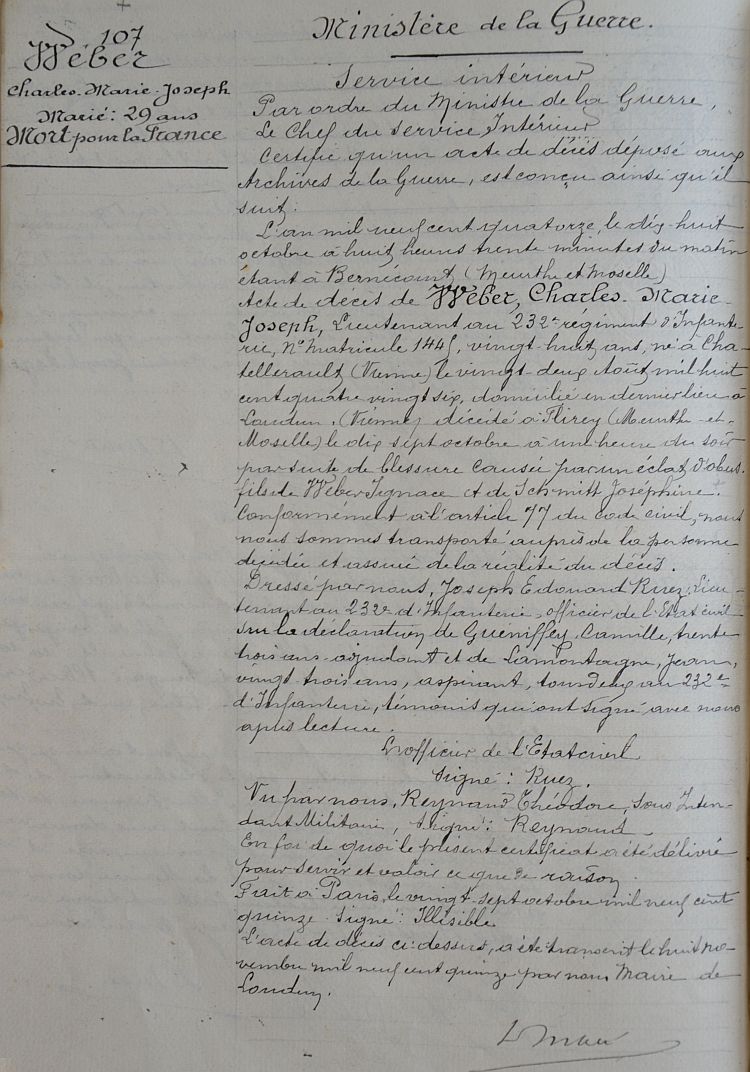 107
Wéber
Charles-Marie-Joseph
Marié: 29 ans
Mort pour la France
Ministère de la Guerre.
Service intérieur
Par ordre du Ministre de la Guerre,
Le Chef du Service Intérieur
Certifie qu'un acte de décès déposé aux
Archives de la Guerre, est conçu ainsi qu'il
suit:
L'an mil neuf cent quatorze, le dix-huit
octobre à huit heures trente minutes du matin
étant à Bernécourt (Meurthe et Moselle)
Acte de décès de Wéber, Charles-Marie-
Joseph, Lieutenant au 232e régiment d'Infante-
rie, No Matricule 1445, vingt-huit ans, né à Cha-
tellerault (Vienne) le vingt-deux Août mil huit
cent quatre vingt six, domicilié en dernier lieu à
Loudun. (Vienne) décédé à Flirey (Meurthe-et-
Moselle) le dix sept octobre à une heure du soir
par suite de blessure causée par un éclat d'obus.
fils de Wéber Ignace et de Schmitt Joséphine.
Conformément à l'article 77 du code civil, nous
nous sommes transporté auprès de la personne
décédée et assuré de la réalité du décès.
Dressé par nous, Joseph Edouard Ruez, Lieu-
tenant au 232e d'Infanterie, officier de l'Etat civil
sur la déclaration de Guéniffey, Camille, trente
trois ans adjudant et de Lamontagne, Jean,
vingt-trois ans, aspirant, tous deux au 232e
d'Infanterie, témoins qui ont signé avec nous
après lecture.
L'officier de l'Etat civil
Signé: Ruez.
Vu par nous, Reynaud Théodore, Sous Inten-
dant Militaire, Signé: Reynaud.
En foi de quoi le présent certificat a été délivré
pour servir et valoir ce que de raison.
Fait à Paris, le vingt-sept octobre mil neuf cent
quinze. Signé: Illisible.
L'acte de décès ci-dessus, a été transcrit le huit no-
vembre mil neuf cent quinze par nous Maire de
Loudun.